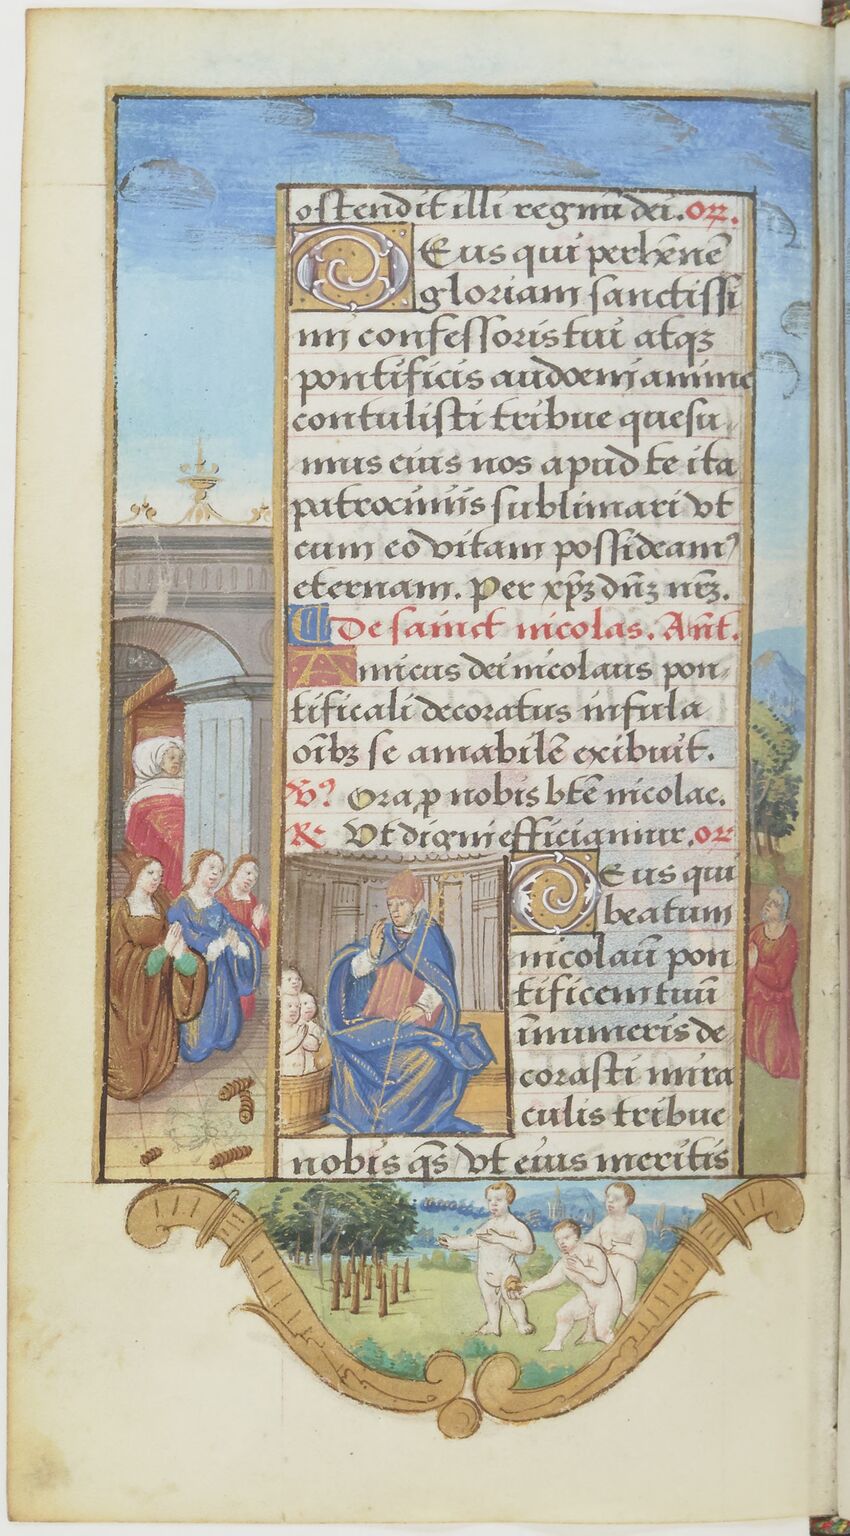 ostendit illi regnū dei. or̄.
Deus qui perhēnē
gloriam sanctissi
mi confessoris tui atqȝ
pontificis audoeni anime
contulisti tribue quesu
mus eius nos apud te ita
patrociniis sublimari vt
cum eo vitam possideam᾽
eternam. Per xp̄ȝ dn̄ȝ nr̄ȝ.
De sainct nicolas. Ant̄.
Amicus dei nicolaus pon
tificali decoratus infula
oībȝ se amabilē exibuit.
V᾽ Ora p̄ nobis btē nicolae.
R Vt digni efficiamur. or
Deus qui
beatum
nicolaū pon
tificem tuū
īnumeris de
corasti mira
culis tribue
nobis q̄s vt eius meritis